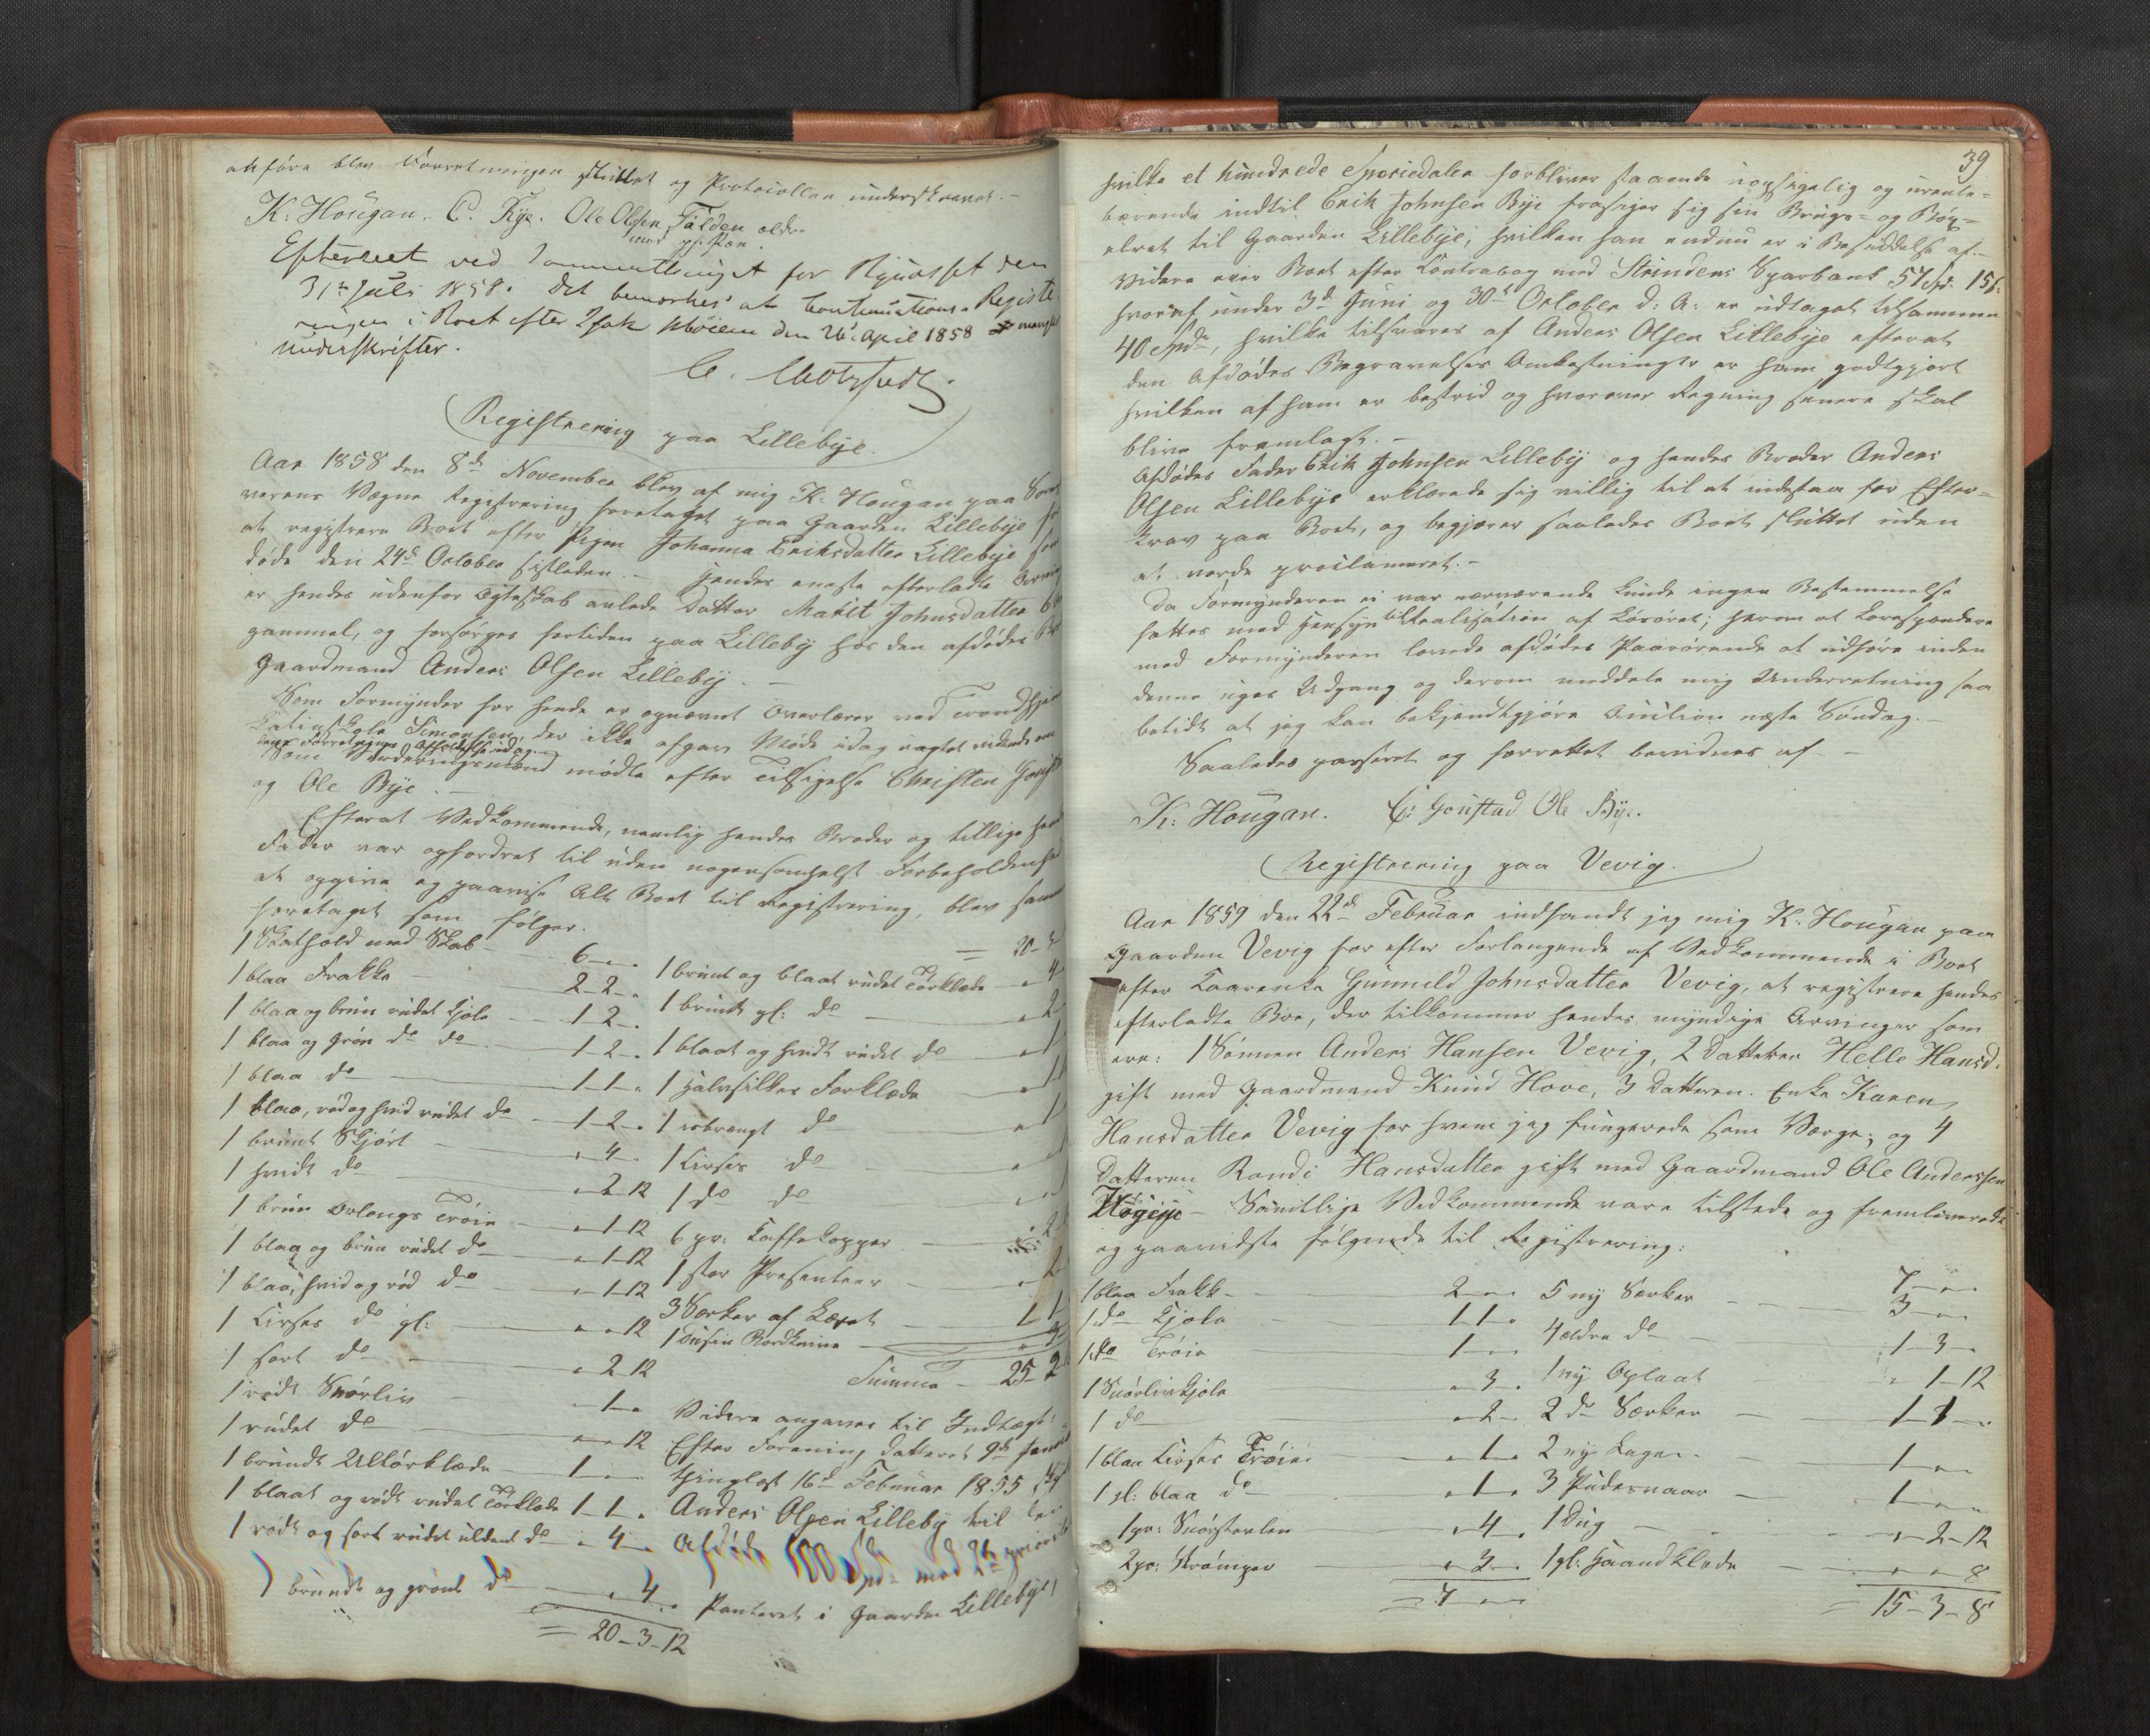 anføre blev Forretningen sluttet og Protocollen underskrevet.-
K: Hougan. C. Rye. Ole Olsen Fålden ældre
med p. Pæn.
Efterseet ved Sommerthinget for den
31te Juli 1858. Det bemærkes at Continuations-Registe
ringen i Boet efter Isak den 26 April 1858
Underskrifter.
Registrering paa Lillebye.
Aar 1858 den 8de November blev af mig K: Hougan paa
verens Vegne Registrering foretaget paa Gaarden Lillebye
at registrere Boet efter Pigen Johanna Eriksdatter Lillebye
døde den 24de October sistleden.- Hendes eneste efterladte
er hendes udenfor Ægteskab avlede Datter Marit Johnsdatter
gammel, og forsørges fortiden paa Lilleby hos den afdødes
Gaardmand Anders Olsen Lilleby.-
Som Formynder for hende er opnævnt Overlærer ved Trondhjem
Simonsen, der ikke afgav Møde idag uagtet
denne Forretnings Afholdelse idag.
Som Vurderingsmænd mødte efter Tilsigelse Christen
og Ole Bye.-
Efterat Vedkommende, nemlig hendes Broder og tillige
Fader var opfordret til uden nogensomhelst Forbeholdenhed
at opgive og paavise Alt Boet til Registrering, blev
foretaget som følger.
1 Skathold med Skab 6 - „ - „
1 blaa Frakke 2 - 2 - „
1 blaa og brun rudet Kjole 1 - 2 - „
1 blaa og grøn do do 1 - 2 - „
1 blaa do 1 - 1 - „
1 blaa, rød og hvid rudet do 1 - 2 - „
1 brunt Skjørt „ - 4 - „
1 hvidt do „ - 2 - 12
1 brun Trøie „ - 1 - 12
1 blaa og brun rudet do „ - 1 - 12
1 blaa, hvid og rød do „ - 1 - 12
1 Kirses do gl: „ - „ - 12
1 sort do „ - 2 - 12
1 rødt Snørliv „ - 1 - „
1 rudet do „ - „ - 12
1 brundt Ultørklæde 1 - „ - „
1 blaat og rødt rudet Tørklæde 1 - 1 - „
1 rødt og sort rudet uldent do „ - 4 - „
1 brundt og grønt do „ - 4 - „
= 20 - 3 - 12
= 20 - 3
1 brunt og blaat rudet Tørklæde „ - 4
1 brunt gl: do „ - 2
1 blaat og hvidt rudet do „ - 1
1 Halvsilkes Forklæde „ - 1
1 do „ - 1
1 Kirses do
1 do do
6 pr: Kaffekopper
1 stor Presenteer
3 Særker af Lærret 1 - 1
1 Dusin Bordknive
Summa - 25 - 2
Videre angaves til Indtægt:
Efter Forening dateret 9de
thinglæst 16de Februar 1855
Anders Olsen Lilleby til
Afdøde 100 Spd. med 2den
Panteret i Gaarden Lillebye,
39
hvilke et hundrede Speciedaler forbliver staaende uopsigelig og urente-
bærende indtil Erik Johnsen Bye frasiger sig sin Brugs- og
elret til Gaarden Lillebye, hvilken han endnu er i Besiddelse af.-
Videre eier Boet efter Contrabog med Strindens Sparbank 57 Spd. 15 s.
hvoraf under 3de Juni og 30te October d: A: er udtaget tilsammen
40 Spdr, hvilke tilsvares af Anders Olsen Lillebye efterat
den Afdødes Begravelses Omkostninger er ham godtgjort
hvilken af ham er bestrid og hvorover Regning senere skal
blive fremlagt.-
Afdødes Fader Erik Johnsen Lilleby og hendes Broder Anders
Olsen Lillebye erklærede sig villig til at indestaa for Efter-
krav paa Boet, og begjærer saaledes Boet sluttet uden
at vorde proclameret.-
Da Formynderen ei var nærværende kunde ingen Bestemmelse
fattes med Hensyn til Realisation af Løsøret; herom at korrespondere
med Formynderen lovede afdødes Paarørende at udføre inden
denne Uges Udgang og derom meddele mig Underretning saa
betidt at jeg kan bekjendtgjøre Auction næste Søndag.-
Saaledes passeret og forrettet bevidnes af-
K: Hougan. C: Goustad Ole Bye.
Registrering paa Vevig.
Aar 1859 den 22de Februar indfandt jeg mig K. Hougan paa
Gaarden Vevig for efter Forlangende af Vedkommende i Boet
efter Kaarenke Gunneld Johnsdatter Vevig, at registrere hendes
efterladte Boe, der tilkommer hendes myndige Arvinger som
ere: 1 Sønnen Anders Hansen Vevig, 2 Datteren Helle Hansd.
gift med Gaardmand Knud Hove, 3 Datteren Enke Karen
Hansdatter Vevig for hvem jeg fungerede som Værge; og 4
Datteren Randi Hansdatter gift med Gaardmand Ole Anderssen
- Samtlige Vedkommende vare tilstede og fremleverede
og paavidste følgende til Registrering:
1 blaa Frakke 2 - „ - „
1 do Kjole 1 - 1 - „
1 do Trøie 1 - „ - „
1 Snørlivkjole „ - 3 - „
1 do „ - 2 - „
1 blaa Kirses Trøie „ - 1 - „
1 gl: blaa do „ - 1 - „
1 pr: Snørstøvler „ - 4 - „
2 pr: Strømper „ - 3 - „
= 7 - „ - „
7 - „ - „
5 ny Særker 3 - „ - „
4 ældre do 1 - 3 - „
1 ny Oplaat „ - 1 - 12
2 do Særker 1 - 1 - „
2 ny Lagen 1 - „ - „
3 Pudevaar 1 - „ - „
1 Dug „ - 2 - 12
1 gl: Haandklæde „ - „ - 8
= 15 - 3 - 8